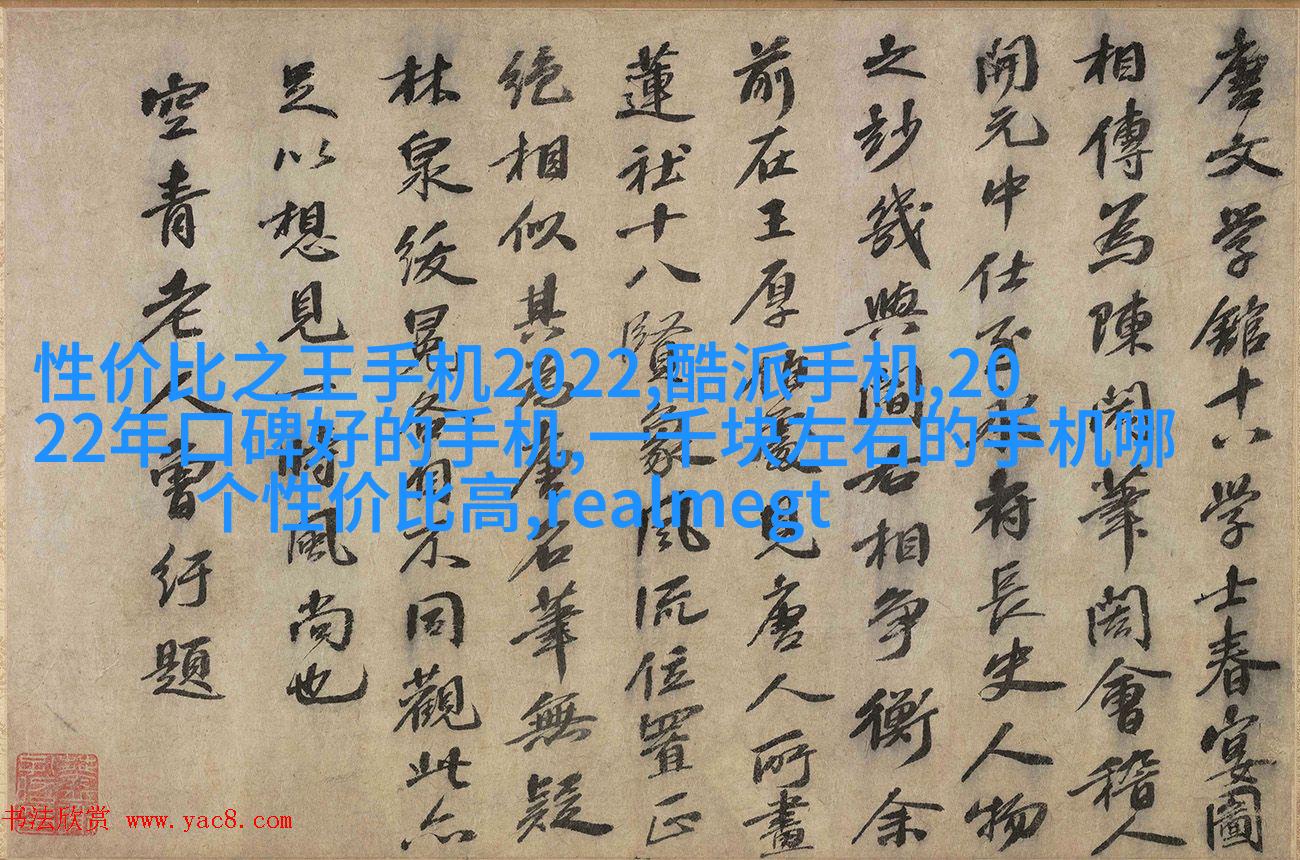 唐文学館十八学士春宴圖
相傳為陳閎筆閎會稽人
開元中仕至永府長史人物
之妙幾與閻右相爭衡余
前在王厚處見唐人所畫
蓮社十八賢象風流位置正
絕相似其為唐名筆無疑
林泉綬冕各自不同觀此亦
足以想見一時風尚也
空青老人曾紆題
性价比之王手机2022,酷派手机,20
22年口碑好的手机,一千块左右的手机哪
个性价比高,realmegt
书法欣赏 www.yac8.com